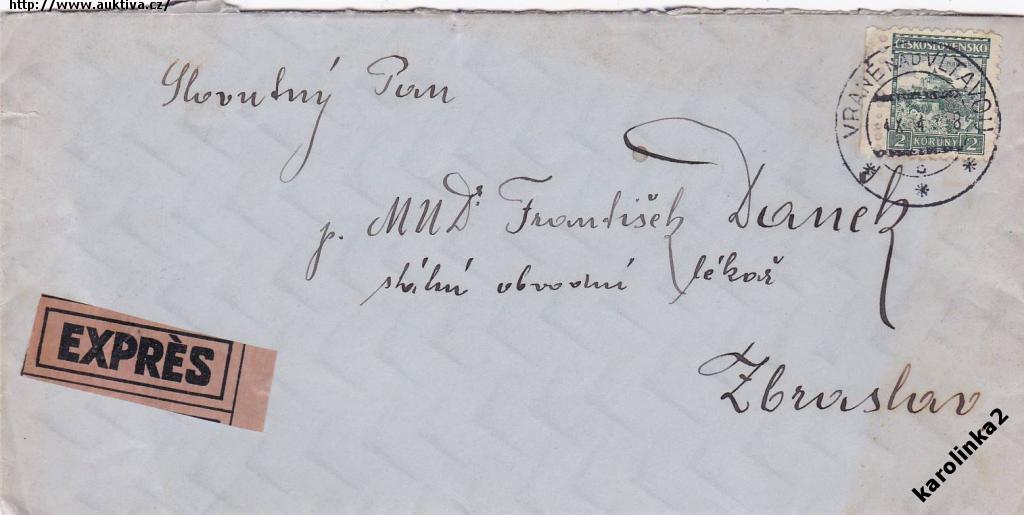 http://www.auktiva.cz/
ČESKOSLOVENSKO
VRANÉ NAD VLTAVOU
2 KORUNY 2
Slovutný Pan
p. MUDr. František Danek
státní obvodní lékař
Zbraslav
EXPRÈS
karolinka2